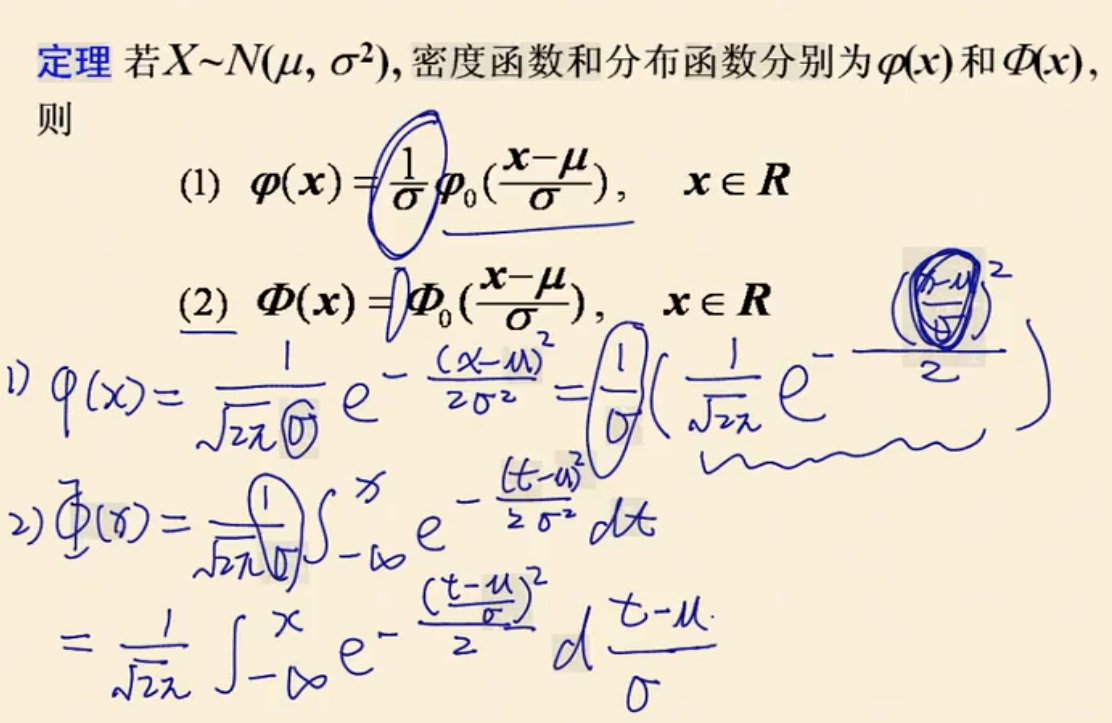 定理 若X~N(μ, σ²), 密度函数和分布函数分别为φ(x)和Φ(x),
则
(1) φ(x) = 1/σ φ₀((x−μ)/σ), x∈R
(2) Φ(x) = Φ₀((x−μ)/σ), x∈R
1) φ(x) = 1/(√2π σ) e^(−(x−μ)²/(2σ²)) = 1/σ ( 1/√2π e^(−((x−μ)/σ)²/2) )
2) Φ(x) = 1/(√2π σ) ∫_{−∞}^{x} e^(−(t−μ)²/(2σ²)) dt
= 1/√2π ∫_{−∞}^{x} e^(−((t−μ)/σ)²/2) d (t−μ)/σ